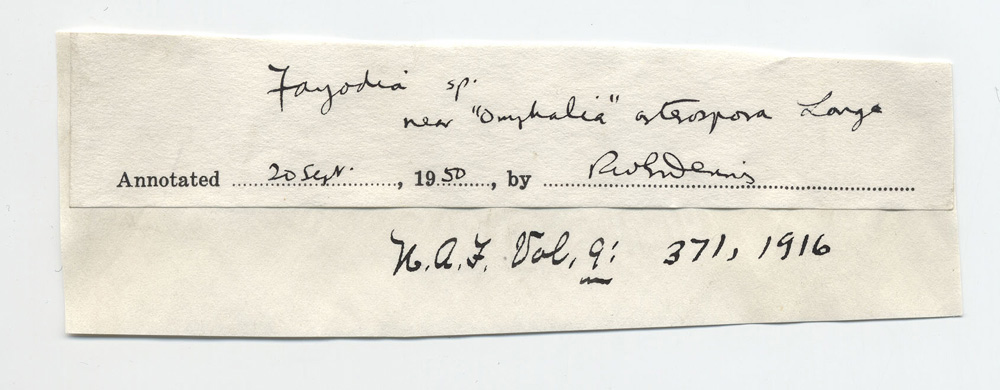 Fayodia sp.
near "Omphalia" asterospora Lange
Annotated 20 Sept., 1950, by RWG Dennis
N.A.F. Vol, 9: 371, 1916